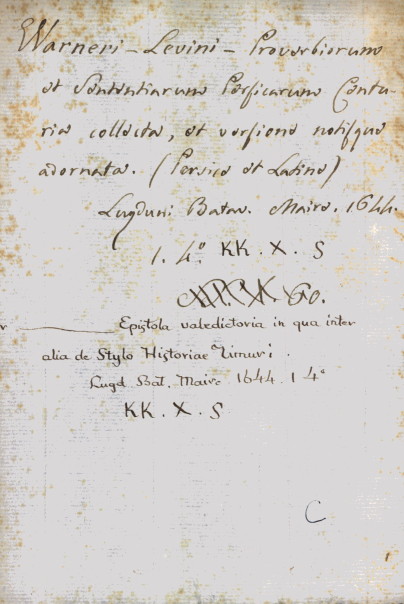 Warneri - Levini - Proverbiorum
et Sententiarum Persicarum Centu-
ria collecta, et versione notisque
adornata. (Persice et Latine)
Lugduni Batav. Maire. 1644.
1. 4º. KK. X. S
60.
Epistola valedictoria in qua inter
alia de Stylo Historiae Timuri.
Lugd Bat. Maire 1644. 1 4º
KK. X. S
C